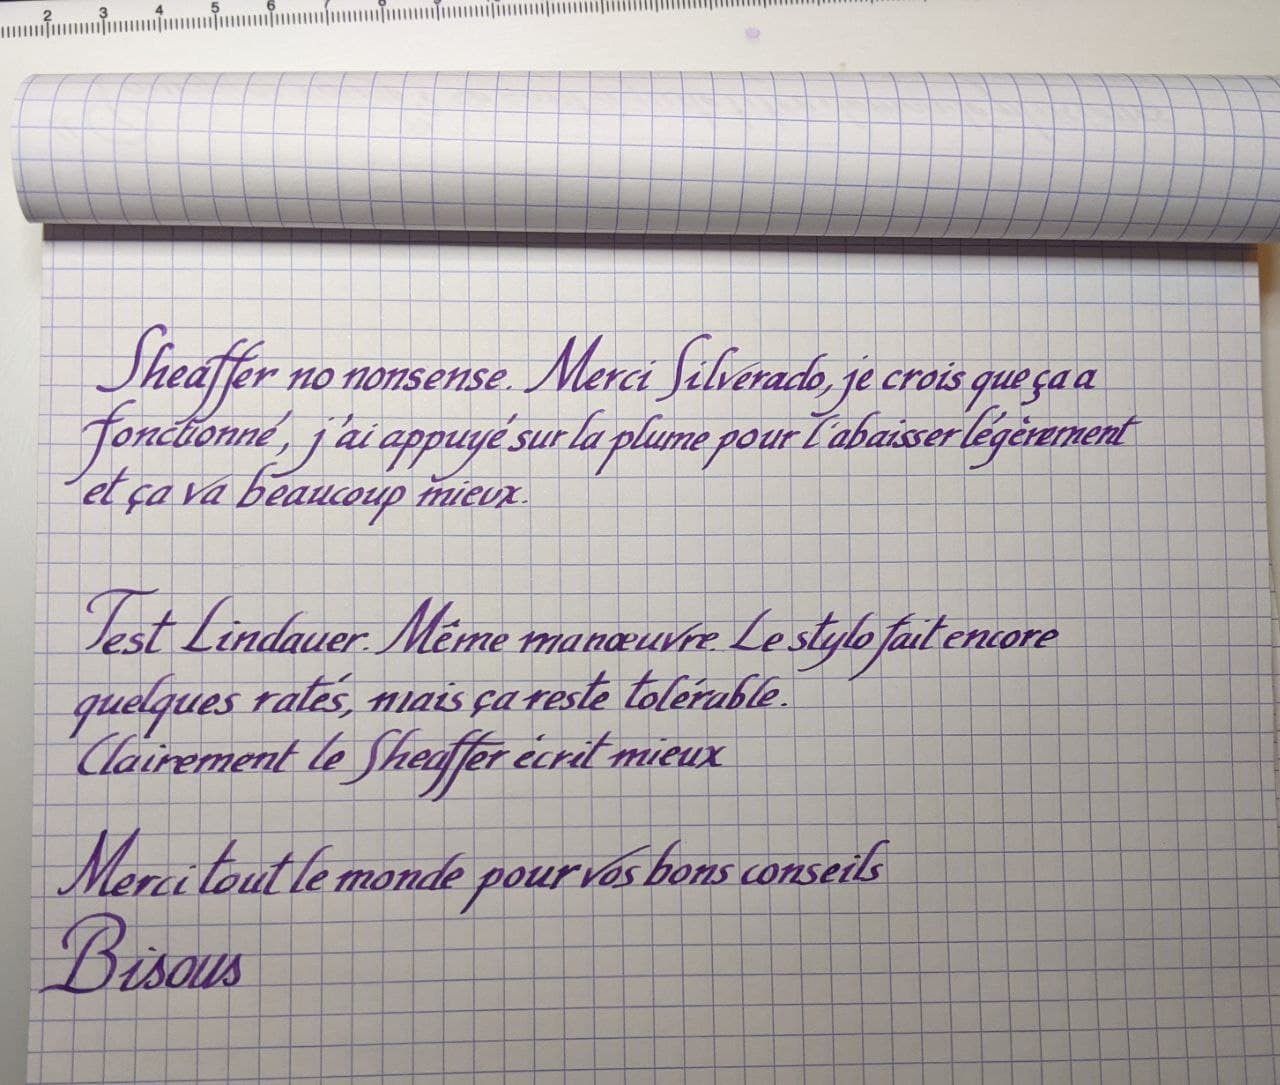 2 3 4 5 6 7 8 9 10
Sheaffer no nonsense. Merci Silverado, je crois que ça a
fonctionné, j'ai appuyé sur la plume pour l'abaisser légèrement
et ça va beaucoup mieux.
Test Lindauer. Même manœuvre. Le stylo fait encore
quelques ratés, mais ça reste tolérable.
Clairement le Sheaffer écrit mieux
Merci tout le monde pour vos bons conseils
Bisous